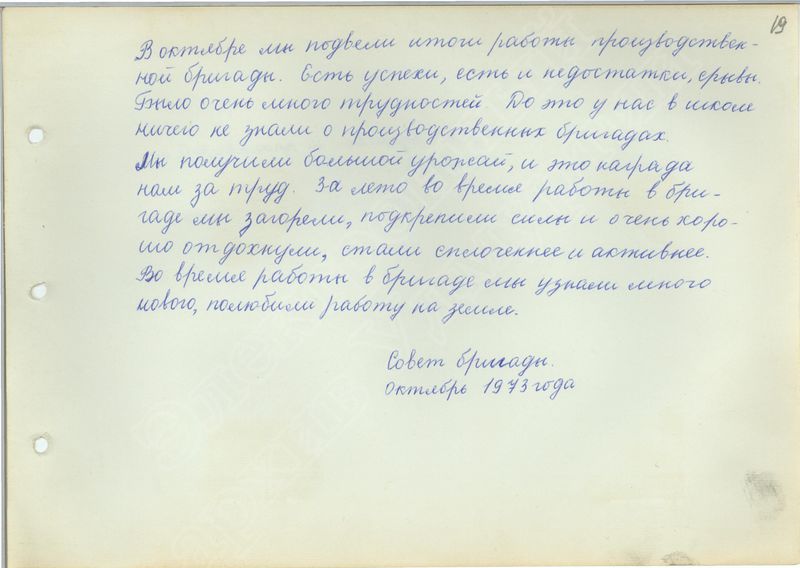 19
В октябре мы подвели итоги работы производствен-
ной бригады. Есть успехи, есть и недостатки, срывы.
Было очень много трудностей. До это у нас в школе
ничего не знали о производственных бригадах.
Мы получили большой урожай, и это награда
нам за труд. За лето во время работы в бри-
гаде мы загорели, подкрепили силы и очень хоро-
шо отдохнули, стали сплоченнее и активнее.
Во время работы в бригаде мы узнали много
нового, полюбили работу на земле.
Совет бригады.
Октябрь 1973 года